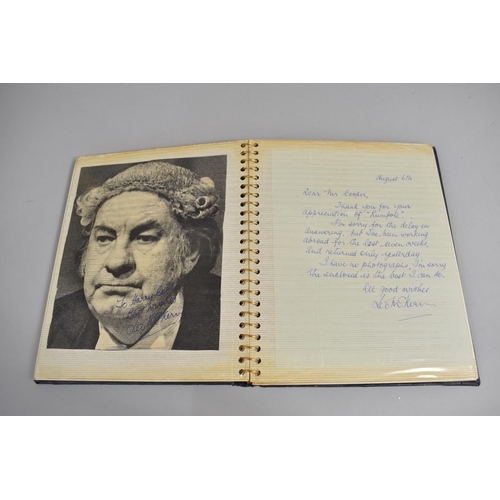 To Harry
best wishes
Leo McKern
August 6th
Dear Mr Cooper,
Thank you for your
appreciation of "Rumpole".
I'm sorry for the delay in
answering, but I've been working
abroad for the last seven weeks,
and returned only yesterday.
I have no photographs, I'm sorry
the enclosed is the best I can do.
All good wishes
Leo McKern